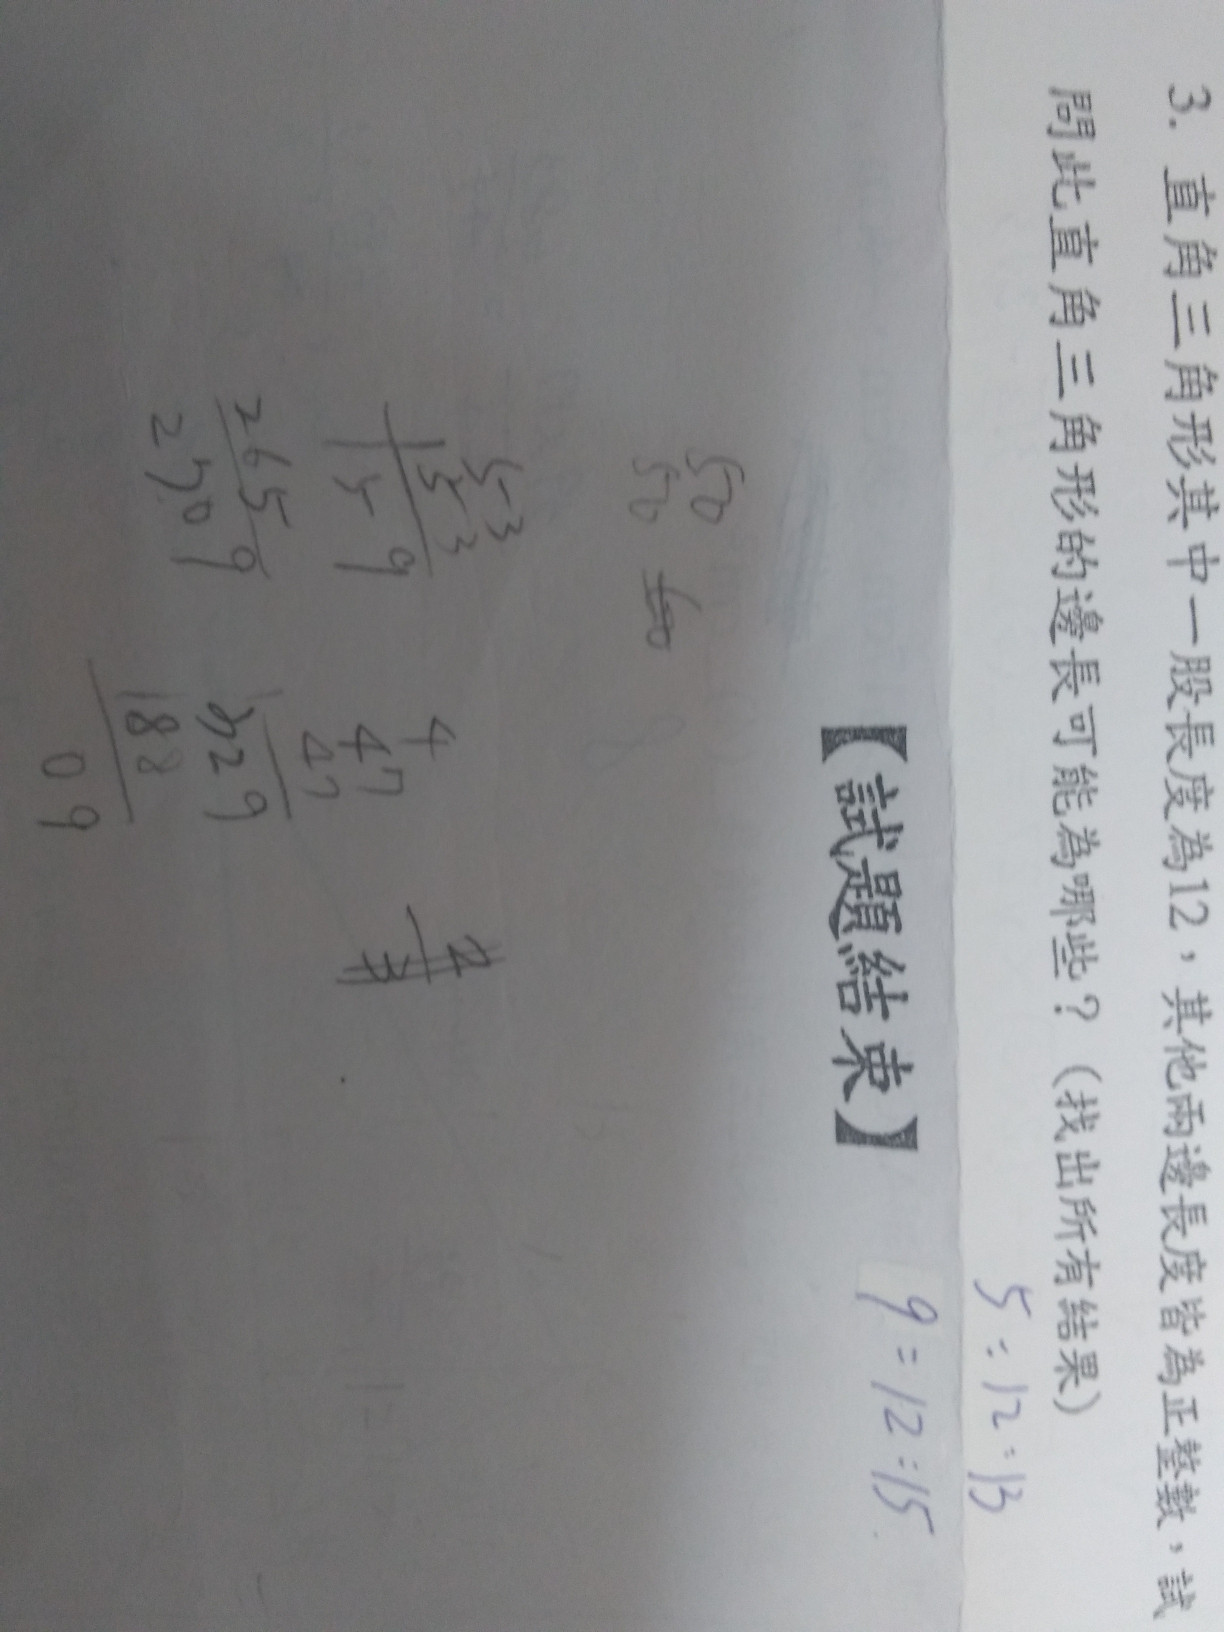 3. 直角三角形其中一股長度為12，其他兩邊長度皆為正整數，試
問此直角三角形的邊長可能為哪些？（找出所有結果）
5:12:13
【試題結束】
9=12:15
50
50
53
53
159
265
2809
4
47
47
329
188
09